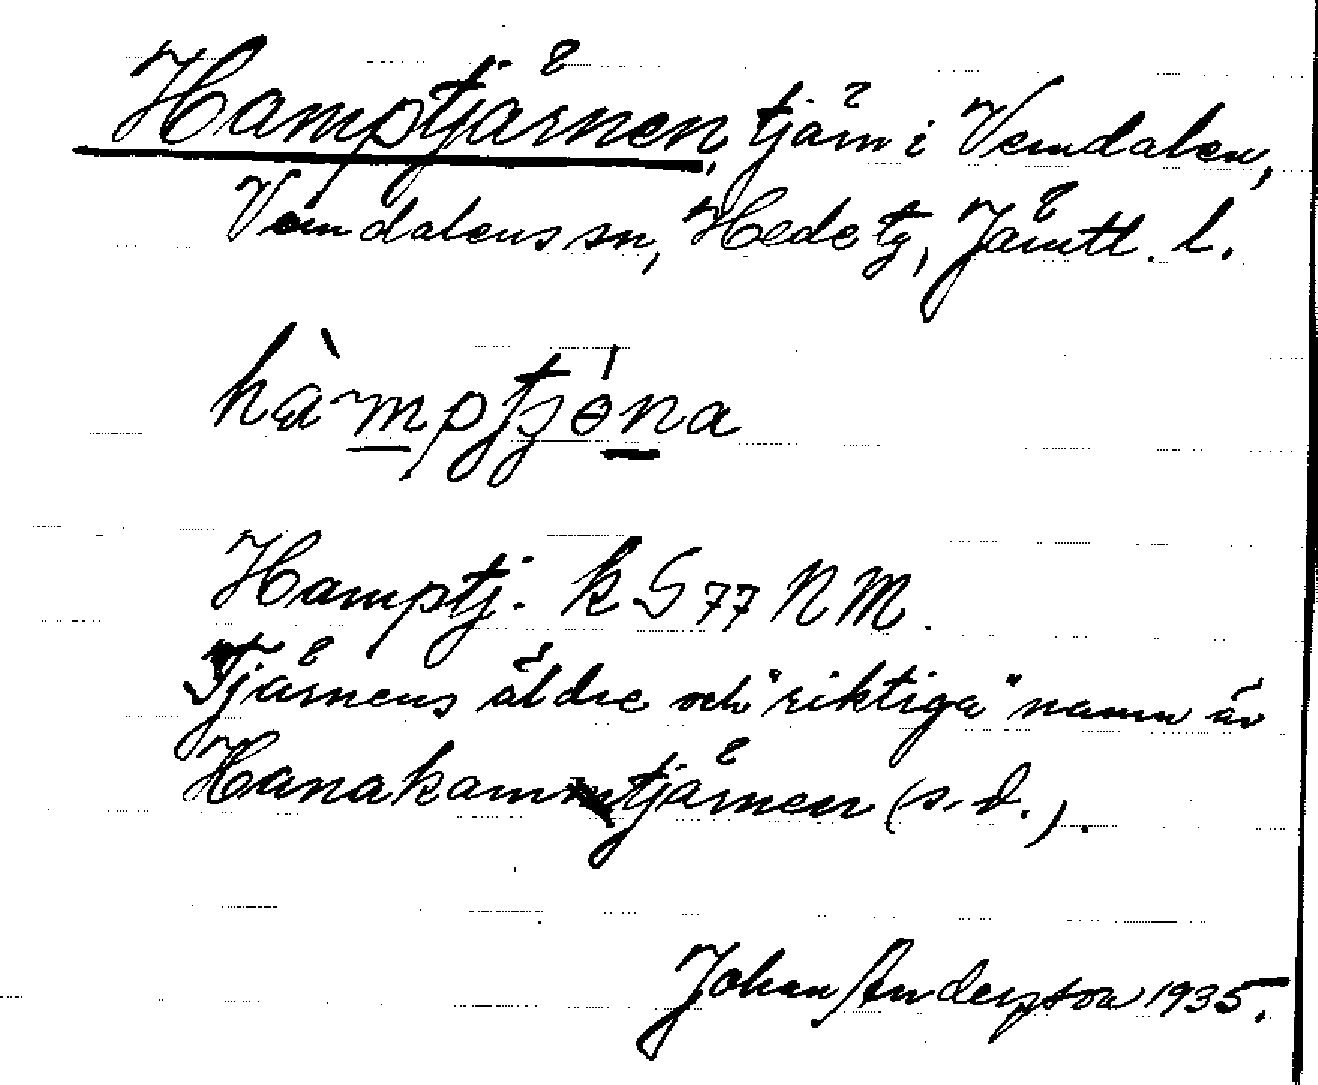 Hamptjärnen, tjärn i Vemdalen,
Vemdalens sn, Hede tg, Jämtl. l.
hàmptjɵ́na
Hamptj. k S 77 NM.
Tjärnens äldre och "riktiga" namn är
Hanakamtjärnen (s. d.).
Johan Anderson 1935.